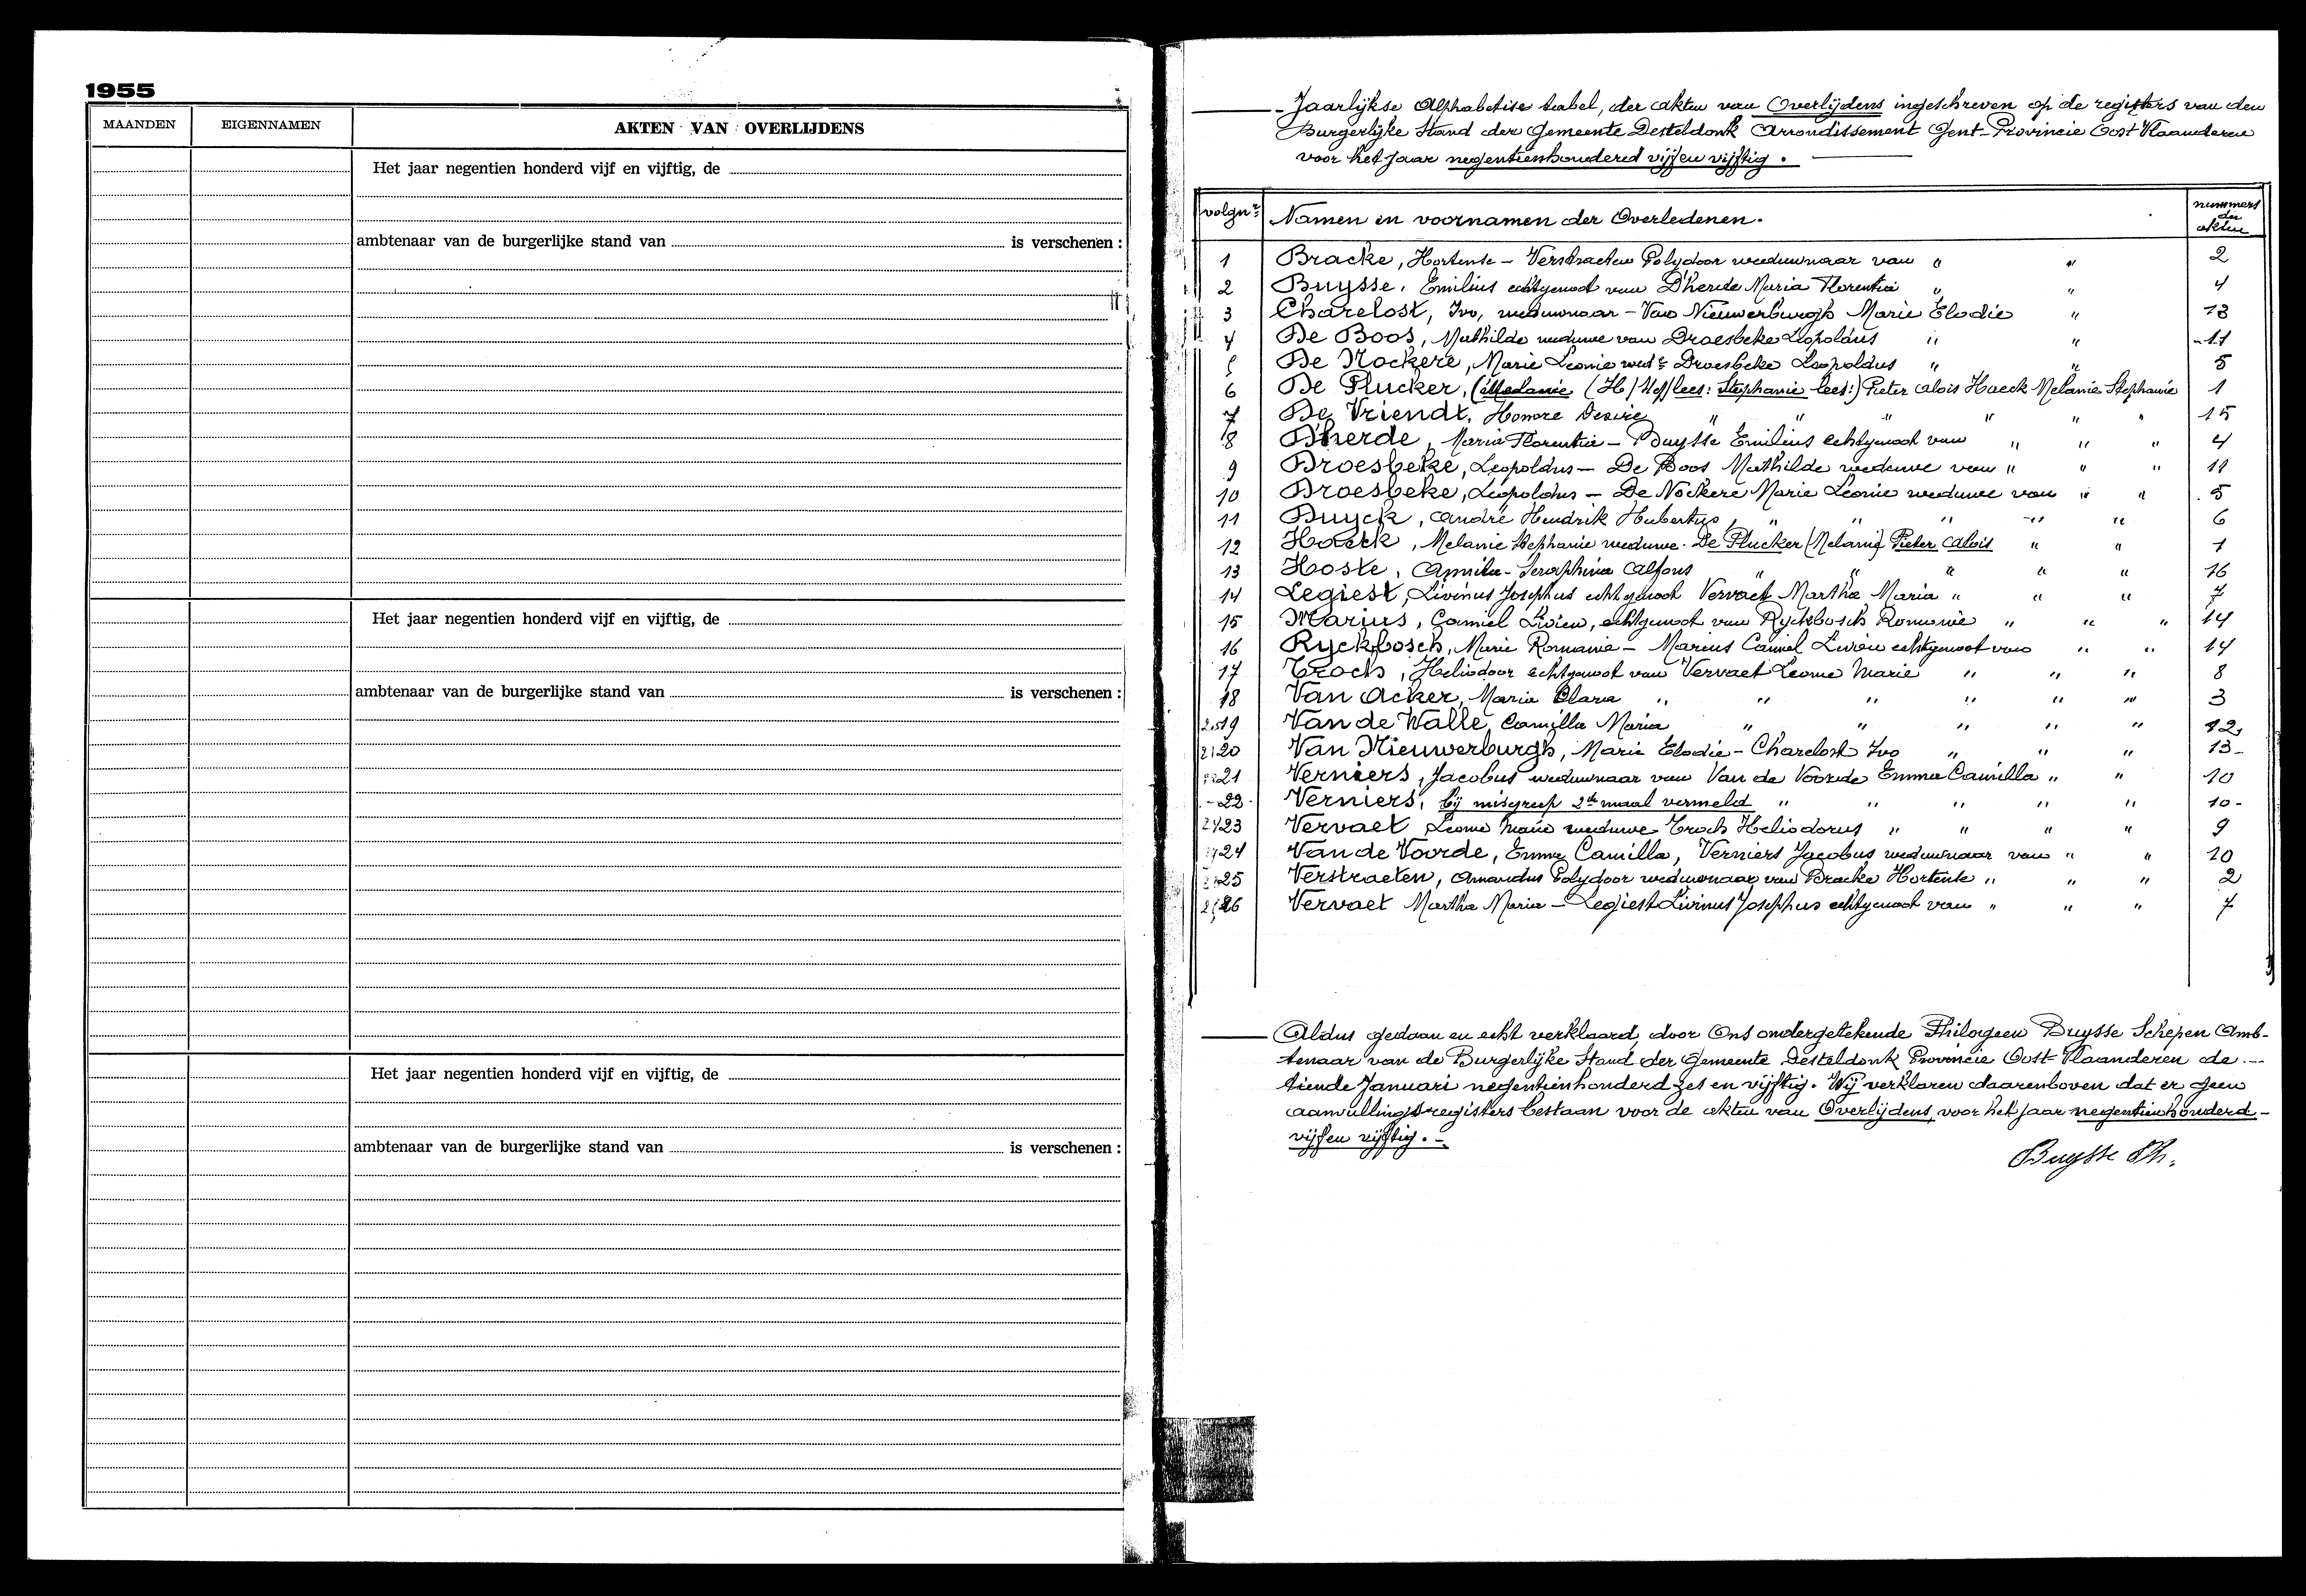 1955
MAANDEN EIGENNAMEN AKTEN VAN OVERLIJDENS
Het jaar negentien honderd vijf en vijftig, de
ambtenaar van de burgerlijke stand van is verschenen :
Het jaar negentien honderd vijf en vijftig, de
ambtenaar van de burgerlijke stand van is verschenen :
Het jaar negentien honderd vijf en vijftig, de
ambtenaar van de burgerlijke stand van is verschenen :
Jaarlijkse Alphabetise tabel, der akten van Overlijdens ingeschreven op de registers van den
Burgerlijke Stand der Gemeente Desteldonk Arrondissement Gent - Provincie Oost Vlaanderen
voor het jaar negentienhonderd vijf en vijftig .
volgnr Namen en voornamen der Overledenen. nummers der akten
1 Bracke, Hortense - Verstraeten Polydoor weduwnaar van " " 2
2 Buysse, Emilius echtgenoot van D'herde Maria Florentia " " 4
3 Charelost, Ivo, weduwnaar - Van Nieuwerburgh Marie Elodie " 13
4 De Boos, Mathilde weduwe van Droesbeke Leopoldus " " 11
5 De Nockere, Marie Leonie wede Droesbeke Leopoldus " " 5
6 De Plucker, (Melanie (H/ lees: Stephanie lees:) Pieter Alois Haeck Melanie Stephanie 1
7 De Vriendt, Honore Desire " " " " " " 15
8 D'herde, Maria Florentia - Buysse Emilius echtgenoot van " " " 4
9 Droesbeke, Leopoldus - De Boos Mathilde weduwe van " " " 11
10 Droesbeke, Leopoldus - De Nockere Marie Leonie weduwe van " " 5
11 Duyck, André Hendrik Hubertus, " " " " " 6
12 Haeck, Melanie Stephanie weduwe - De Plucker (Melanie) Pieter Alois " " 1
13 Hoste, Seraphina Alfons " " " " " 16
14 Legiest, Livinus Josephus echtgenoot Vervaet Martha Maria " " " 7
15 Marius, Camiel Livien, echtgenoot van Ryckbosch Romanie " " " 14
16 Ryckbosch, Marie Romanie - Marius Camiel Livien echtgenoot van " " 14
17 Troch, Heliodoor echtgenoot van Vervaet Leonie Marie " " " 8
18 Van Acker, Maria Clara " " " " " " 3
19 Van de Walle Camilla Maria " " " " " 12
20 Van Nieuwerburgh, Marie Elodie - Charelost Ivo " " " 13 -
21 Verniers, Jacobus weduwnaar van Van de Voorde Emma Camilla " " 10
22 Verniers, bij misgreep 2de maal vermeld " " " " " 10 -
23 Vervaet Leonie Marie weduwe Troch Heliodorus " " " " 9
24 Van de Voorde, Emma Camilla, Verniers Jacobus weduwnaar van " " 10
25 Verstraeten, Amandus Polydoor weduwnaar van Bracke Hortense " " " 2
26 Vervaet Martha Maria - Legiest Livinus Josephus echtgenoot van " " " 7
Aldus gedaan en echt verklaard, door Ons ondergetekende Philogeen Buysse Schepen Amb-
tenaar van de Burgerlijke Stand der Gemeente Desteldonk Provincie Oost-Vlaanderen de
tiende Januari negentienhonderd zes en vijftig. Wij verklaren daarenboven dat er geen
aanvullingsregisters bestaan voor de akten van Overlijdens, voor het jaar negentienhonderd -
vijf en vijftig. -
Buysse Ph.